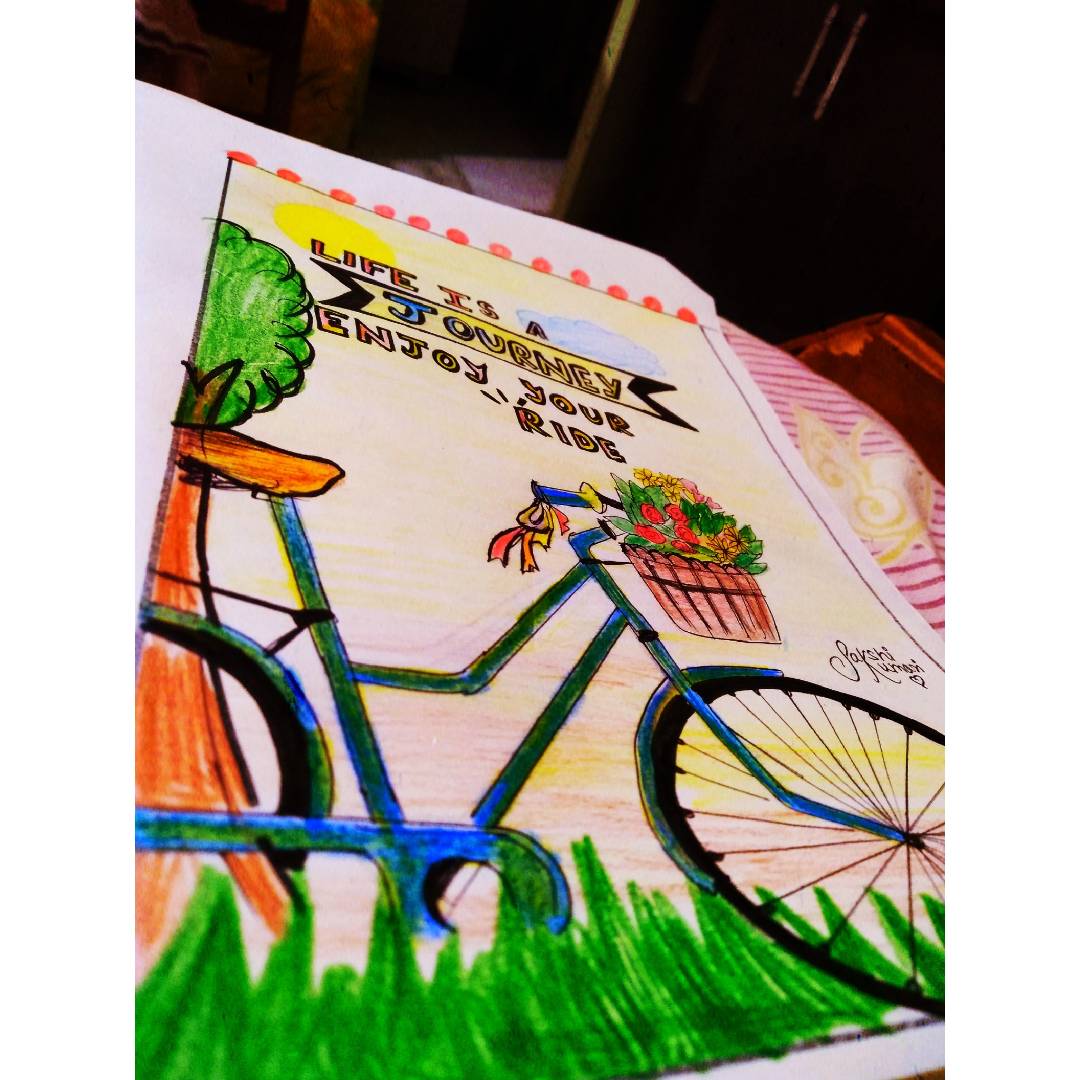 LIFE IS A
JOURNEY
ENJOY YOUR
RIDE
Sakshi
Kumari